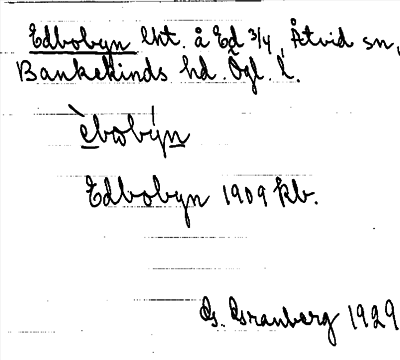 Edbobyn lht. å Ed 3/4, Åtvid sn,
Bankekinds hd. Ögl. l.
èbωbýn
Edbobyn 1909 kb.
G. Granberg 1929